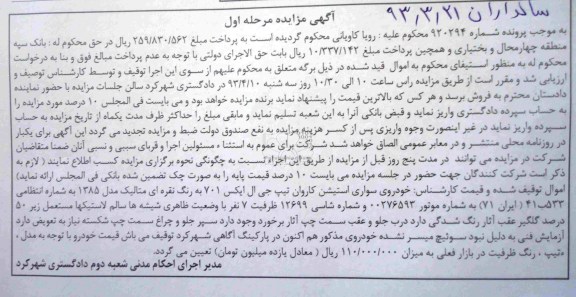 سالداران ۹۳٫۳٫۲۱
آگهی مزایده مرحله اول
به موجب پرونده شماره ۹۲۰۲۹۴ محکوم علیه : رویا کاویانی محکوم گردیده است به پرداخت مبلغ ۲۵۹/۸۳۰/۵۶۲ ریال در حق محکوم له : بانک سپه
منطقه چهارمحال و بختیاری و همچنین پرداخت مبلغ ۱۰/۳۳۷/۱۴۲ ریال بابت حق الاجرای دولتی با توجه به عدم پرداخت مبالغ فوق و بنا به درخواست
محکوم له به منظور استیفای محکوم به اموال قید شده در ذیل برگه متعلق به محکوم علیهم از سوی این اجرا توقیف و توسط کارشناس توصیف و
ارزیابی شد و مقرر است از طریق مزایده راس ساعت ۱۰ الی ۱۰/۳۰ روز سه شنبه ۹۳/۴/۱۰ در دادگستری شهرکرد سالن جلسات مزایده با حضور نماینده
دادستان محترم به فروش برسد و هر کس که بالاترین قیمت را پیشنهاد نماید برنده مزایده خواهد بود و می بایست فی المجلس ۱۰ درصد مورد مزایده را
به حساب سپرده دادگستری واریز نماید و قبض بانکی آنرا به این شعبه تسلیم نماید و مابقی مبلغ را حداکثر ظرف مدت یکماه از تاریخ مزایده به حساب
سپرده واریز نماید در غیر اینصورت وجوه واریزی پس از کسر هزینه مزایده به نفع صندوق دولت ضبط و مزایده تجدید می گردد این آگهی برای یکبار
در روزنامه محلی منتشر و در معابر عمومی الصاق خواهد شد شرکت برای عموم به استثناء مسئولین اجرا و قربای سببی و نسبی آنان ضمنا متقاضیان
شرکت در مزایده می توانند در مدت پنج روز قبل از مزایده از طریق این اجراء نسبت به چگونگی نحوه برگزاری مزایده کسب اطلاع نمایند ( لازم به
ذکر است شرکت کنندگان جهت حضور در جلسه مزایده می بایست ۱۰ درصد قیمت پایه را به صورت چک تضمین شده بانکی فی المجلس ارائه نماید)
اموال توقیف شده و قیمت کارشناس: خودروی سواری استیشن کاروان تیپ جی ال ایکس ۷۰۱ به رنگ نقره ای متالیک مدل ۱۳۸۵ به شماره انتظامی
۵۳۳ف۴۱ ( ایران ۷۱) به شماره موتور ۰۰۲۷۶۵۹۳ و شماره شاسی ۱۲۶۹۹ ظرفیت ۷ نفر با وضعیت ظاهری شیشه ها سالم لاستیکها مستعمل زیر ۵۰
درصد گلگیر عقب آثار رنگ شدگی دارد درب جلو و عقب سمت چپ آثار برخورد وجود دارد سپر جلو و چراغ سمت چپ شکسته نیاز به تعویض دارد
آزمایش فنی به دلیل نبود سوئیچ میسر نشده خودروی مذکور هم اکنون در پارکینگ آگاهی شهرکرد توقیف می باش قیمت خودرو با توجه به مدل ،
تیپ ، رنگ ظرفیت در بازار فعلی به میزان ۱۱۰/۰۰۰/۰۰۰ ریال ( معادل یازده میلیون تومان) تعیین می گردد.
مدیر اجرای احکام مدنی شعبه دوم دادگستری شهرکرد